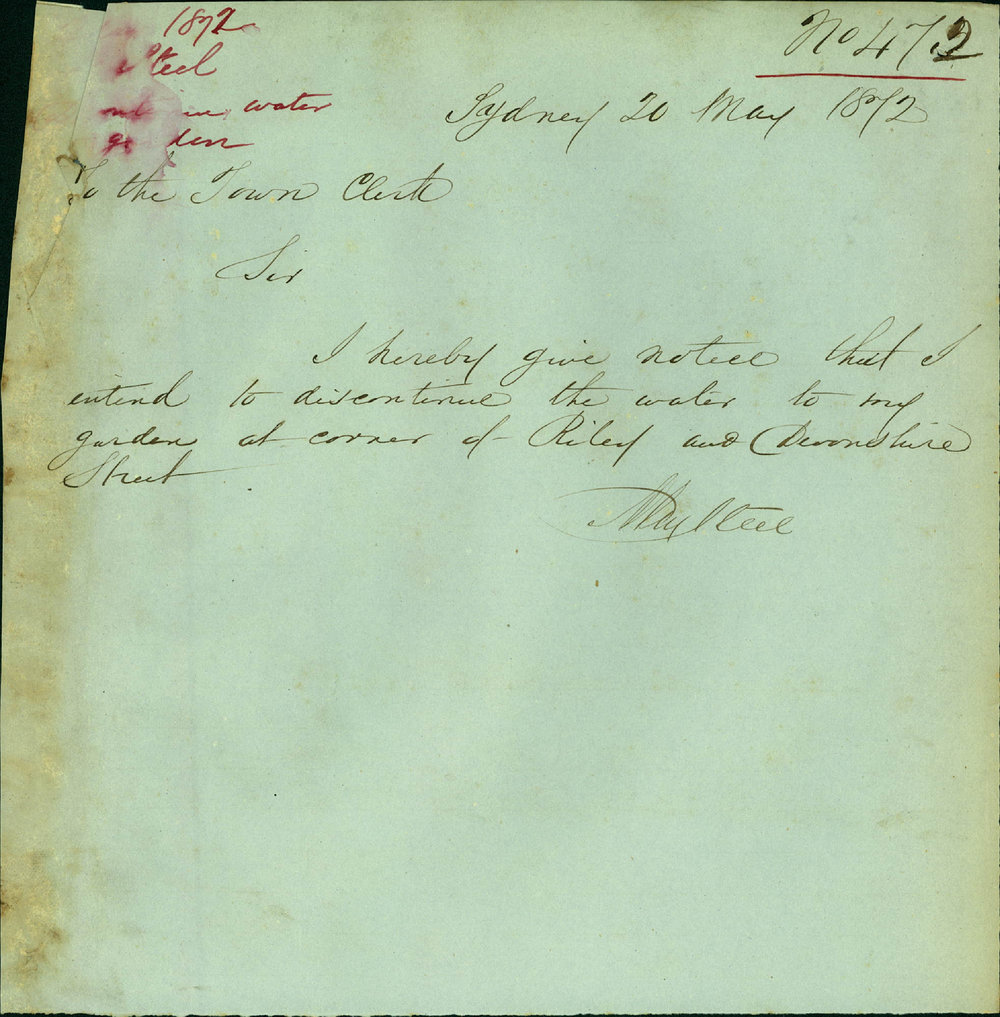 1872
Steel
water
No 472
Sydney 20 May 1872
To the Town Clerk
Sir
I hereby give notice that I
intend to discontinue the water to my
garden at corner of Riley and Devonshire
Street
Steel